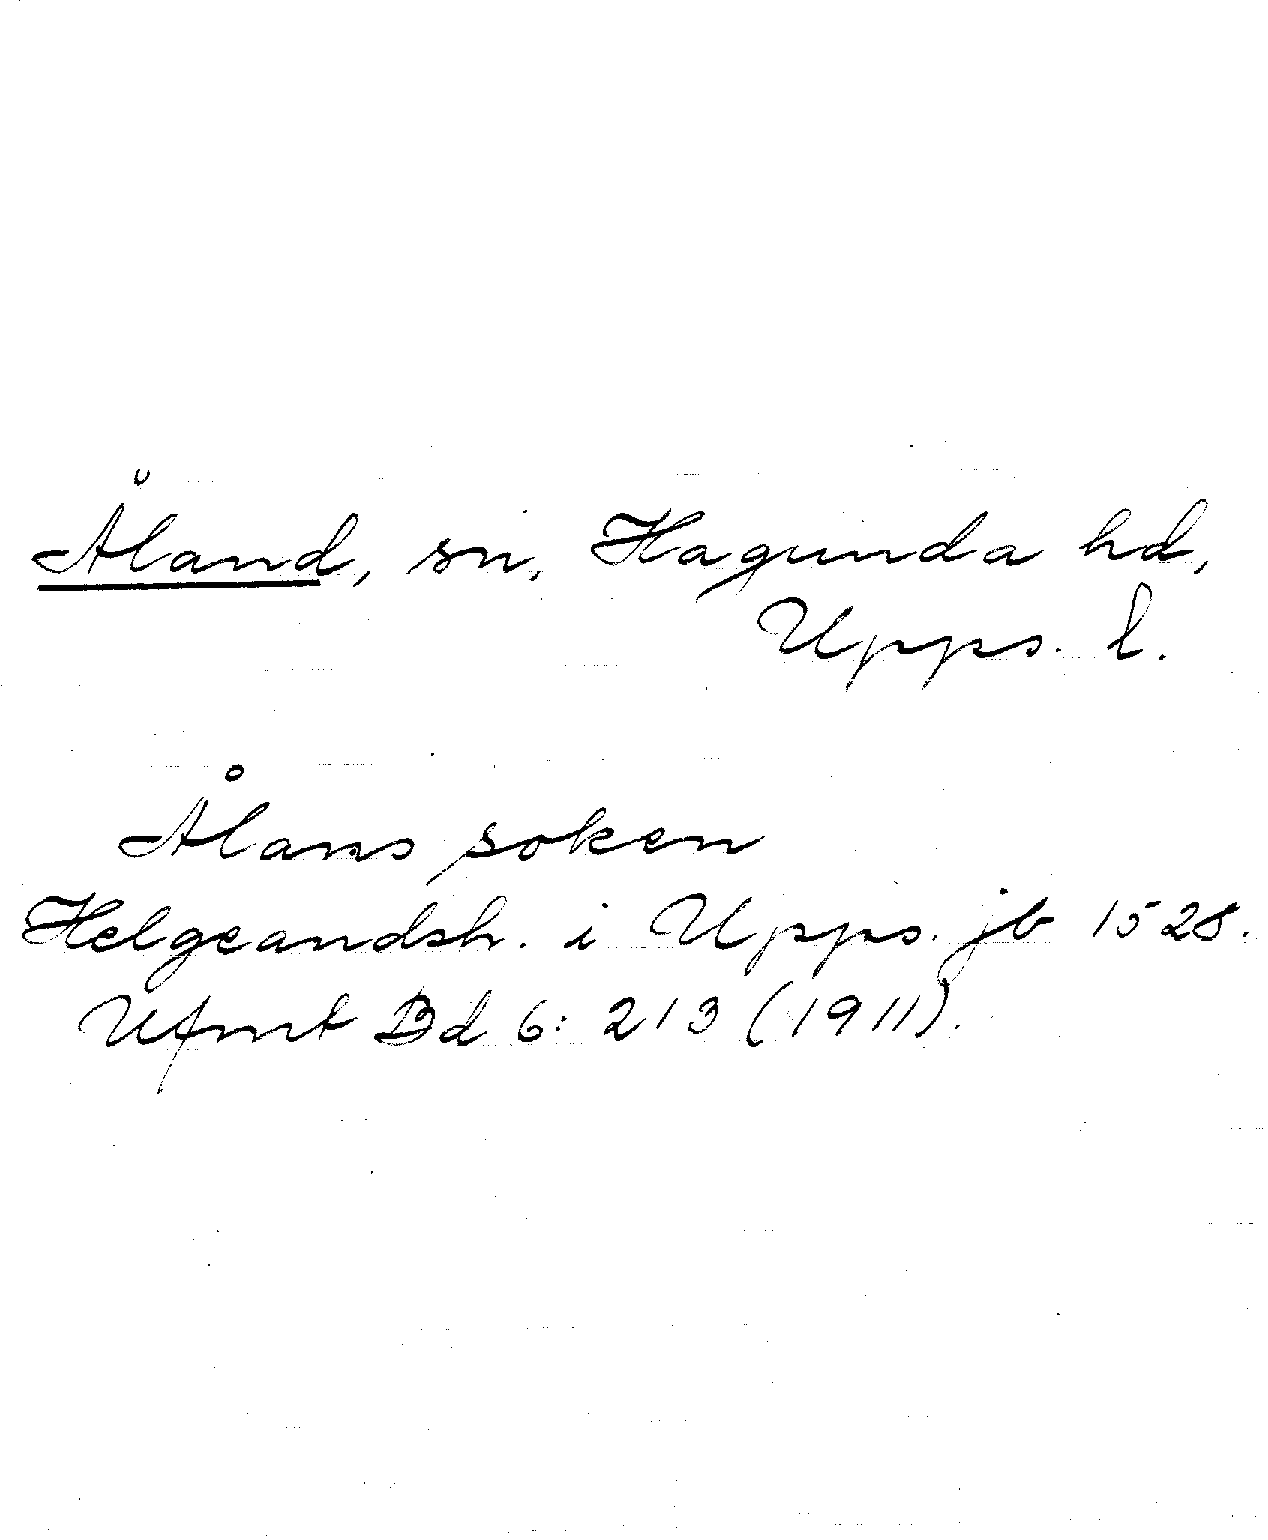 Åland, sn, Hagunda hd,
Upps. l.
Ålans soken
Helgeandsh. i Upps. jb 1528.
Ufmt Bd 6: 213 (1911).